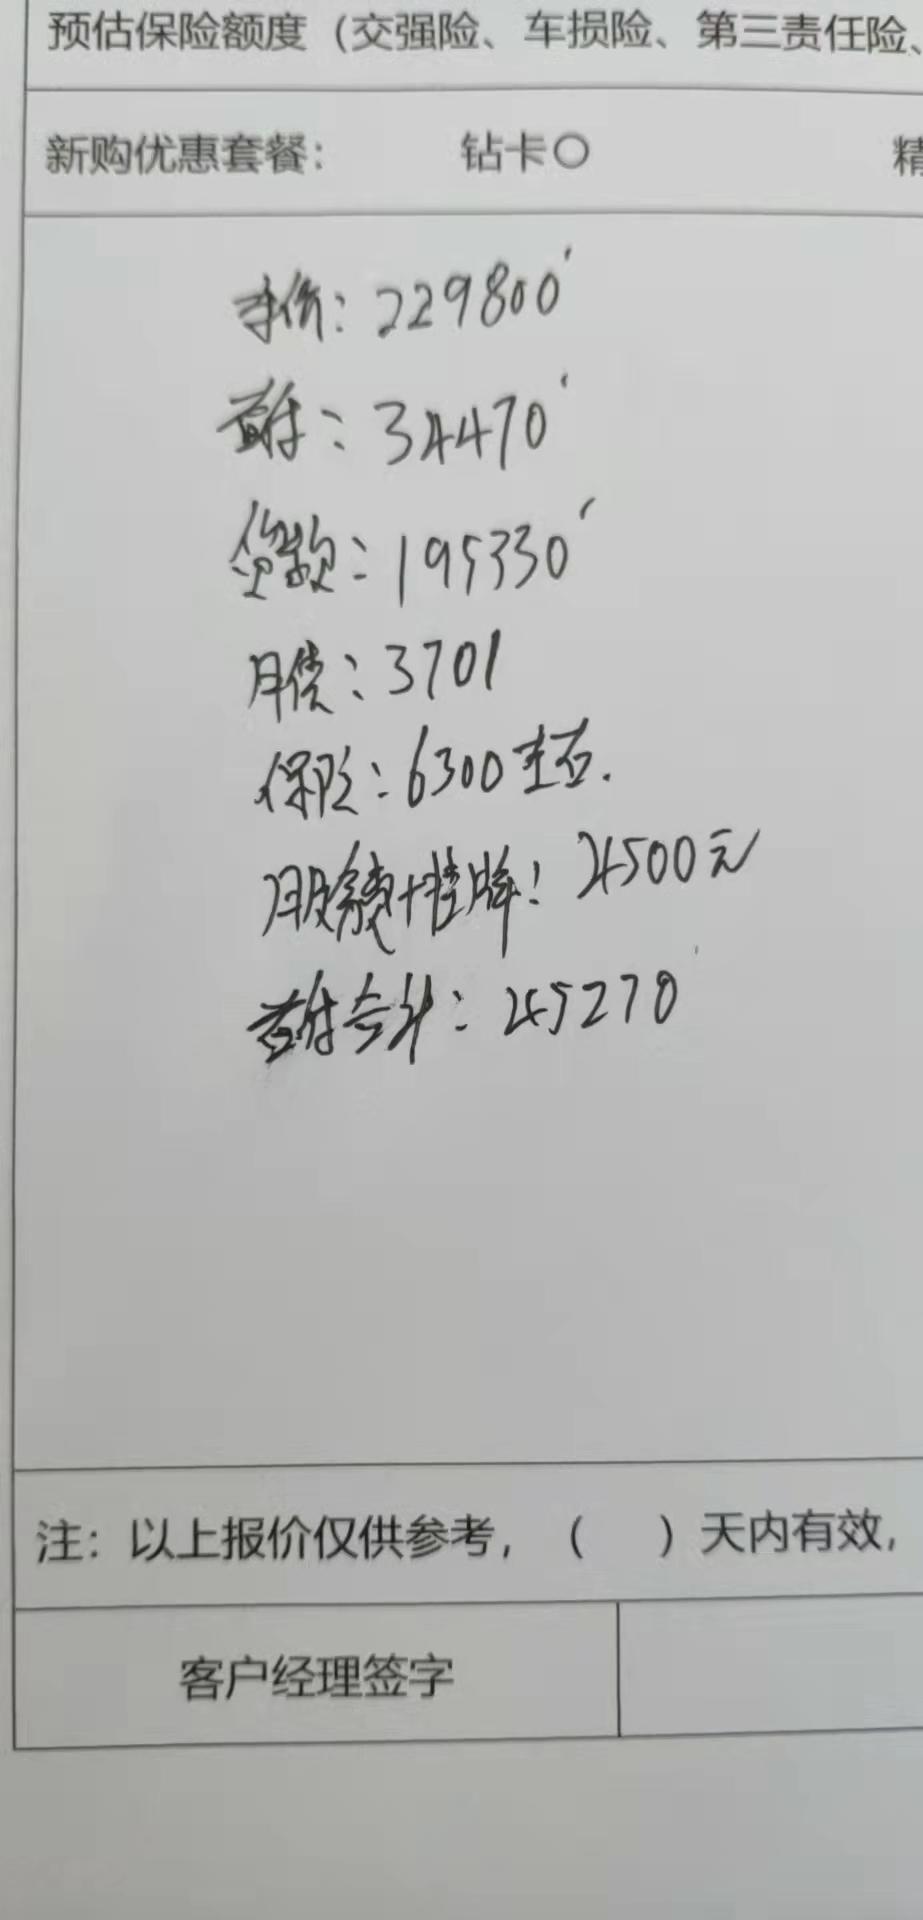 预估保险额度（交强险、车损险、第三责任险、
新购优惠套餐： 钻卡〇 精
车价：229800
首付：34470
贷款：195330
月偿：3701
保险：6300左右.
服务费+挂牌：4500元
首付合计：45270
注：以上报价仅供参考，（ ）天内有效，
客户经理签字